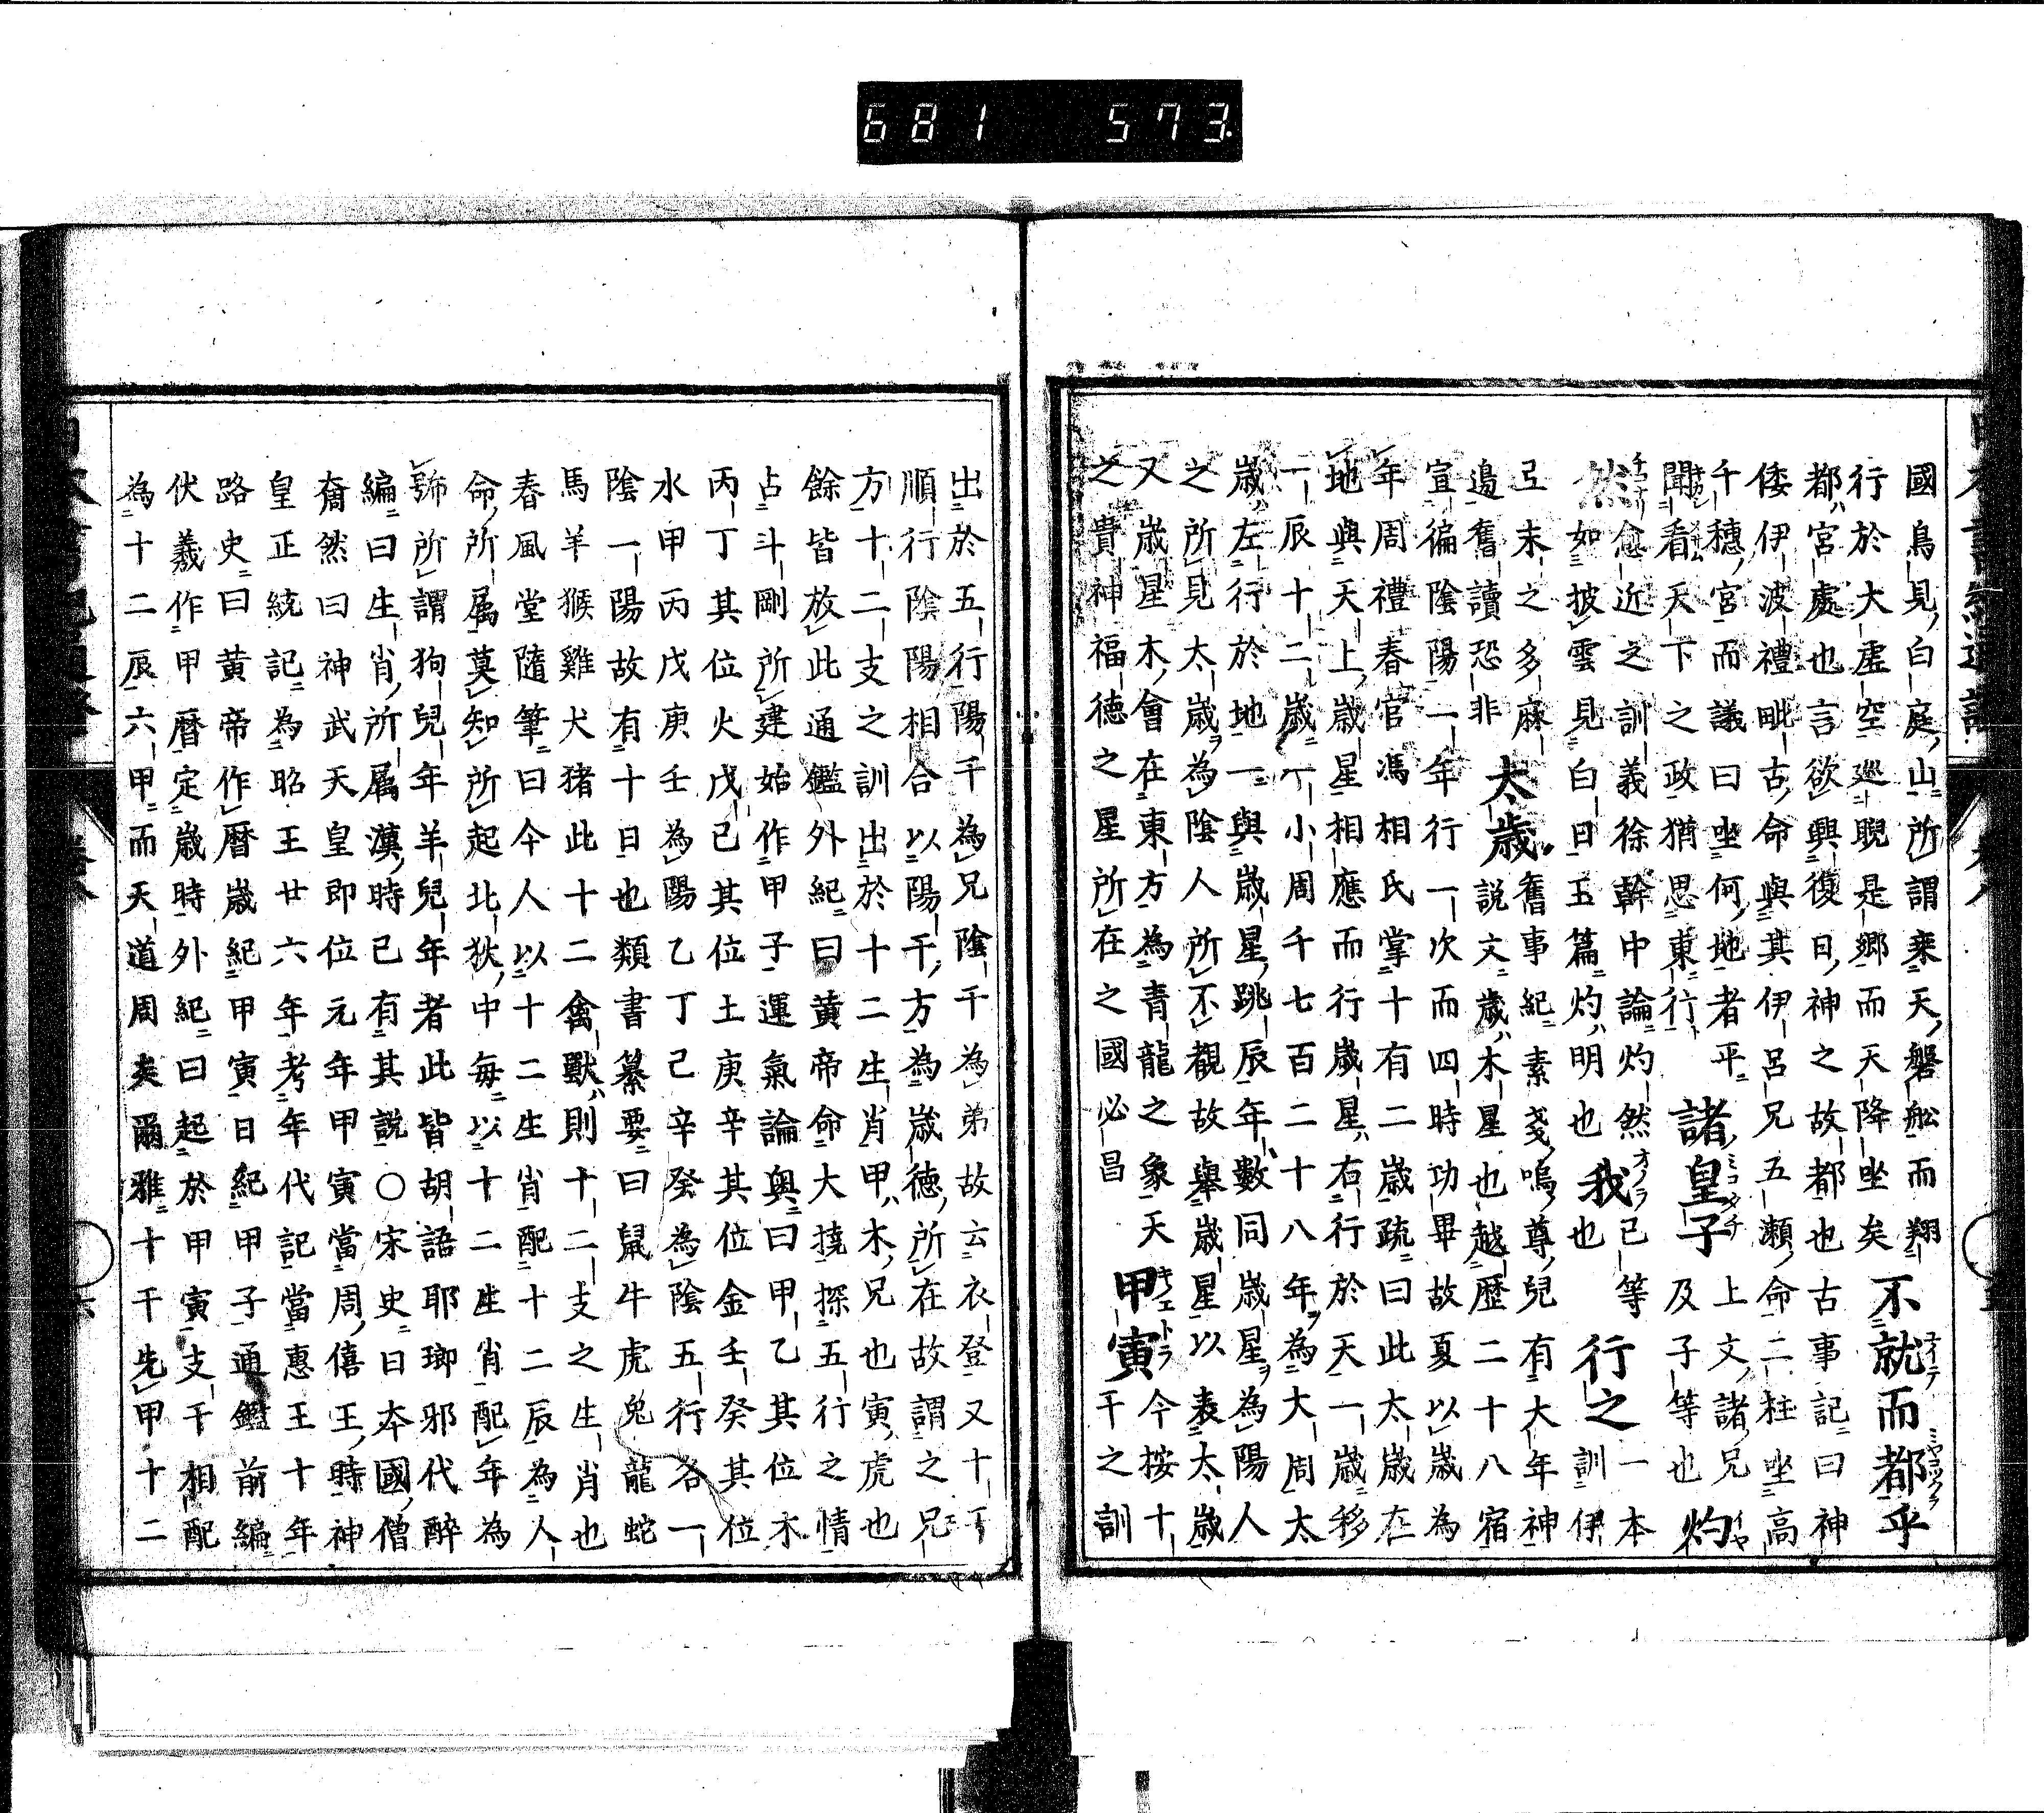 681 573
國鳥見白庭山所謂乗天磐舩而翔
行於大虚空廵睨是郷而天降坐矣不就而都乎
都宮處也言欲興復日神之故都也古事記曰神
倭伊波禮毗古命與其伊呂兄五瀬命二柱坐高
千穗宮而議曰坐何地者平上文諸兄
聞看天下之政猶思東行諸皇子及子等也灼
愈近之訓義徐幹中論灼然己等一本
然如披雲見白日玉篇灼明也我也行之訓伊
末之多麻
邉舊讀恐非太歳舊事紀素戔嗚尊兒有大年神
說文歳木星也越歴二十八宿
宣徧陰陽一年行一次而四時功畢故夏以歳為
年周禮春官馮相氏掌十有二歳疏曰此太歳在
地與天上歳星相應而行歳星右行於天一歳移
一辰十二歳一小周千七百二十八年為大周太
歳左行於地一與歳星跳辰年數同歳星為陽人
之所見太歳為陰人所不觀故舉歳星以表太歳
又歳星木會在東方為青龍之象天
之貴神福徳之星所在之國必昌甲寅今按十干之訓
出於五行陽干為兄陰干為弟故云衣登又十干
順行陰陽相合以陽干方為歳徳所在故謂之兄
方十二支之訓出於十二生肖甲木兄也寅虎也
餘皆放此通鑑外紀曰黄帝命大撓探五行之情
占斗剛所建始作甲子運氣論奧曰甲乙其位木
丙丁其位火戊己其位土庚辛其位金壬癸其位
水甲丙戊庚壬為陽乙丁己辛癸為陰五行各一
陰一陽故有十日也類書纂要曰鼠牛虎兔龍蛇
馬羊猴雞犬猪此十二禽獸則十二支之生肖也
春風堂隨筆曰今人以十二生肖配十二辰為人
命所属莫知所起北狄中每以十二生肖配年為
號所謂狗兒年羊兒年者此皆胡語耶瑯邪代醉
編曰生肖所属漢時已有其說○宋史曰本國僧
奝然曰神武天皇即位元年甲寅當周僖王時神
皇正統記為昭王廿六年考年代記當惠王十年
路史曰黄帝作暦歳紀甲寅日紀甲子通鑑前編
伏羲作甲暦定歳時外紀曰起於甲寅支干相配
為十二辰六甲而天道周矣爾雅十干先甲十二